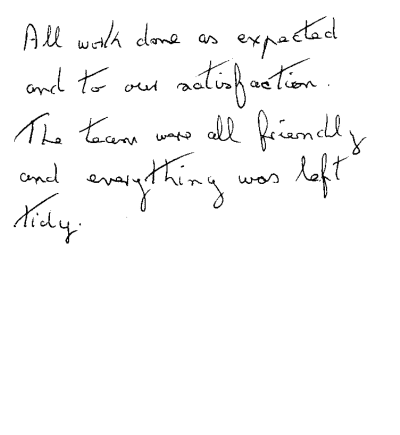 All work done as expected
and to our satisfaction.
The team were all friendly
and everything was left
tidy.